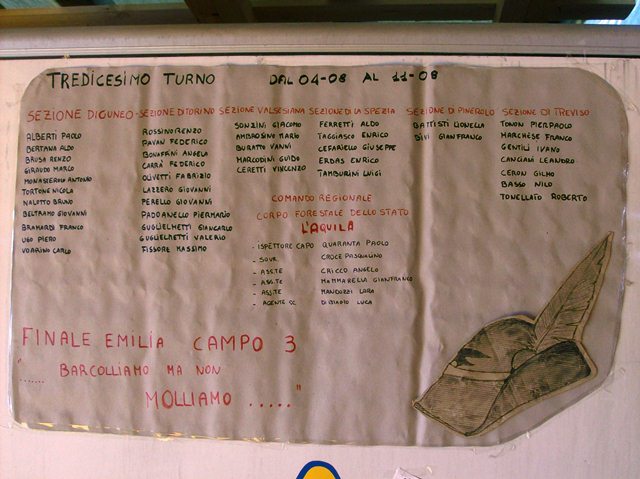 TREDICESIMO TURNO DAL 04-08 AL 11-08
SEZIONE DI CUNEO
ALBERTI PAOLO
BERTANA ALDO
BRUSA RENZO
GIRAUDO MARCO
MONASTEROLO ANTONIO
TORTONE NICOLA
NALLOTTO BRUNO
BELTRAMO GIOVANNI
BRAMARDI FRANCO
UGO PIERO
VOARINO CARLO
SEZIONE DI TORINO
ROSSINO RENZO
PAVAN FEDERICO
BONAFFINI ANGELO
CARRÀ FEDERICO
OLIVETTI FABRIZIO
LAZZERO GIOVANNI
PERELLO GIOVANNI
PADOANELLO PIERMARIO
GUGLIELMETTI GIANCARLO
GUGLIELMETTI VALERIO
FISSORE MASSIMO
SEZIONE VALSESIANA
SONZINI GIACOMO
AMBROSINO MARIO
BURATTO VANNI
MARCODINI GUIDO
CERETTI VINCENZO
SEZIONE DI LA SPEZIA
FERRETTI ALDO
TAGGIASCO ENRICO
CEFANIELLO GIUSEPPE
ERBAS ENRICO
TAMBURINI LUIGI
SEZIONE DI PINEROLO
BATTISTI LIONELLA
BIVI GIANFRANCO
SEZIONE DI TREVISO
TONON PIERPAOLO
MARCHESE FRANCO
GENTILI IVANO
CANGIANI LEANDRO
CERON GILMO
BASSO NILO
TONELLATO ROBERTO
COMANDO REGIONALE
CORPO FORESTALE DELLO STATO
L'AQUILA
- ISPETTORE CAPO QUARANTA PAOLO
- SOVR. CROCE PASQUALINO
- ASS.TE CRICCO ANGELO
- ASS.TE MAMMARELLA GIANFRANCO
- ASS.TE MANCUZZI LORA
- AGENTE SC. DI BIAGIO LUCA
FINALE EMILIA CAMPO 3
"....... BARCOLLIAMO MA NON
MOLLIAMO ....."